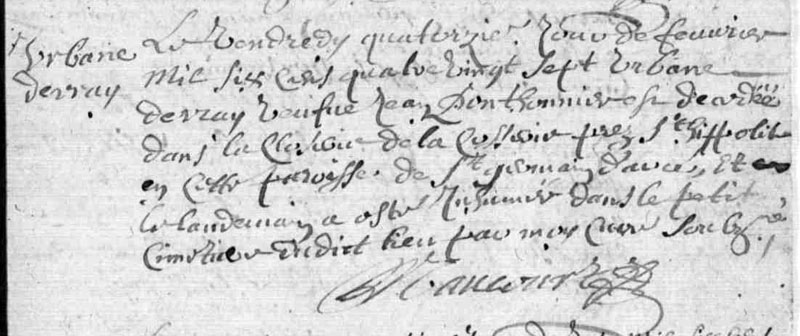 Urbane
derray
Le Vendredy quatorzie. Jour de feuvrier
Mil six cens quatre vingt sept Urbane
derray veufue Jean Ponthonnier est decedée
dans la Closerie de la prez St hippolite
en Cette parroisse de St germain d'arcé, Et
le landemain a esté Inhumée dans le petit
Cimetiere dudict lieu par moy Curé soubz.né